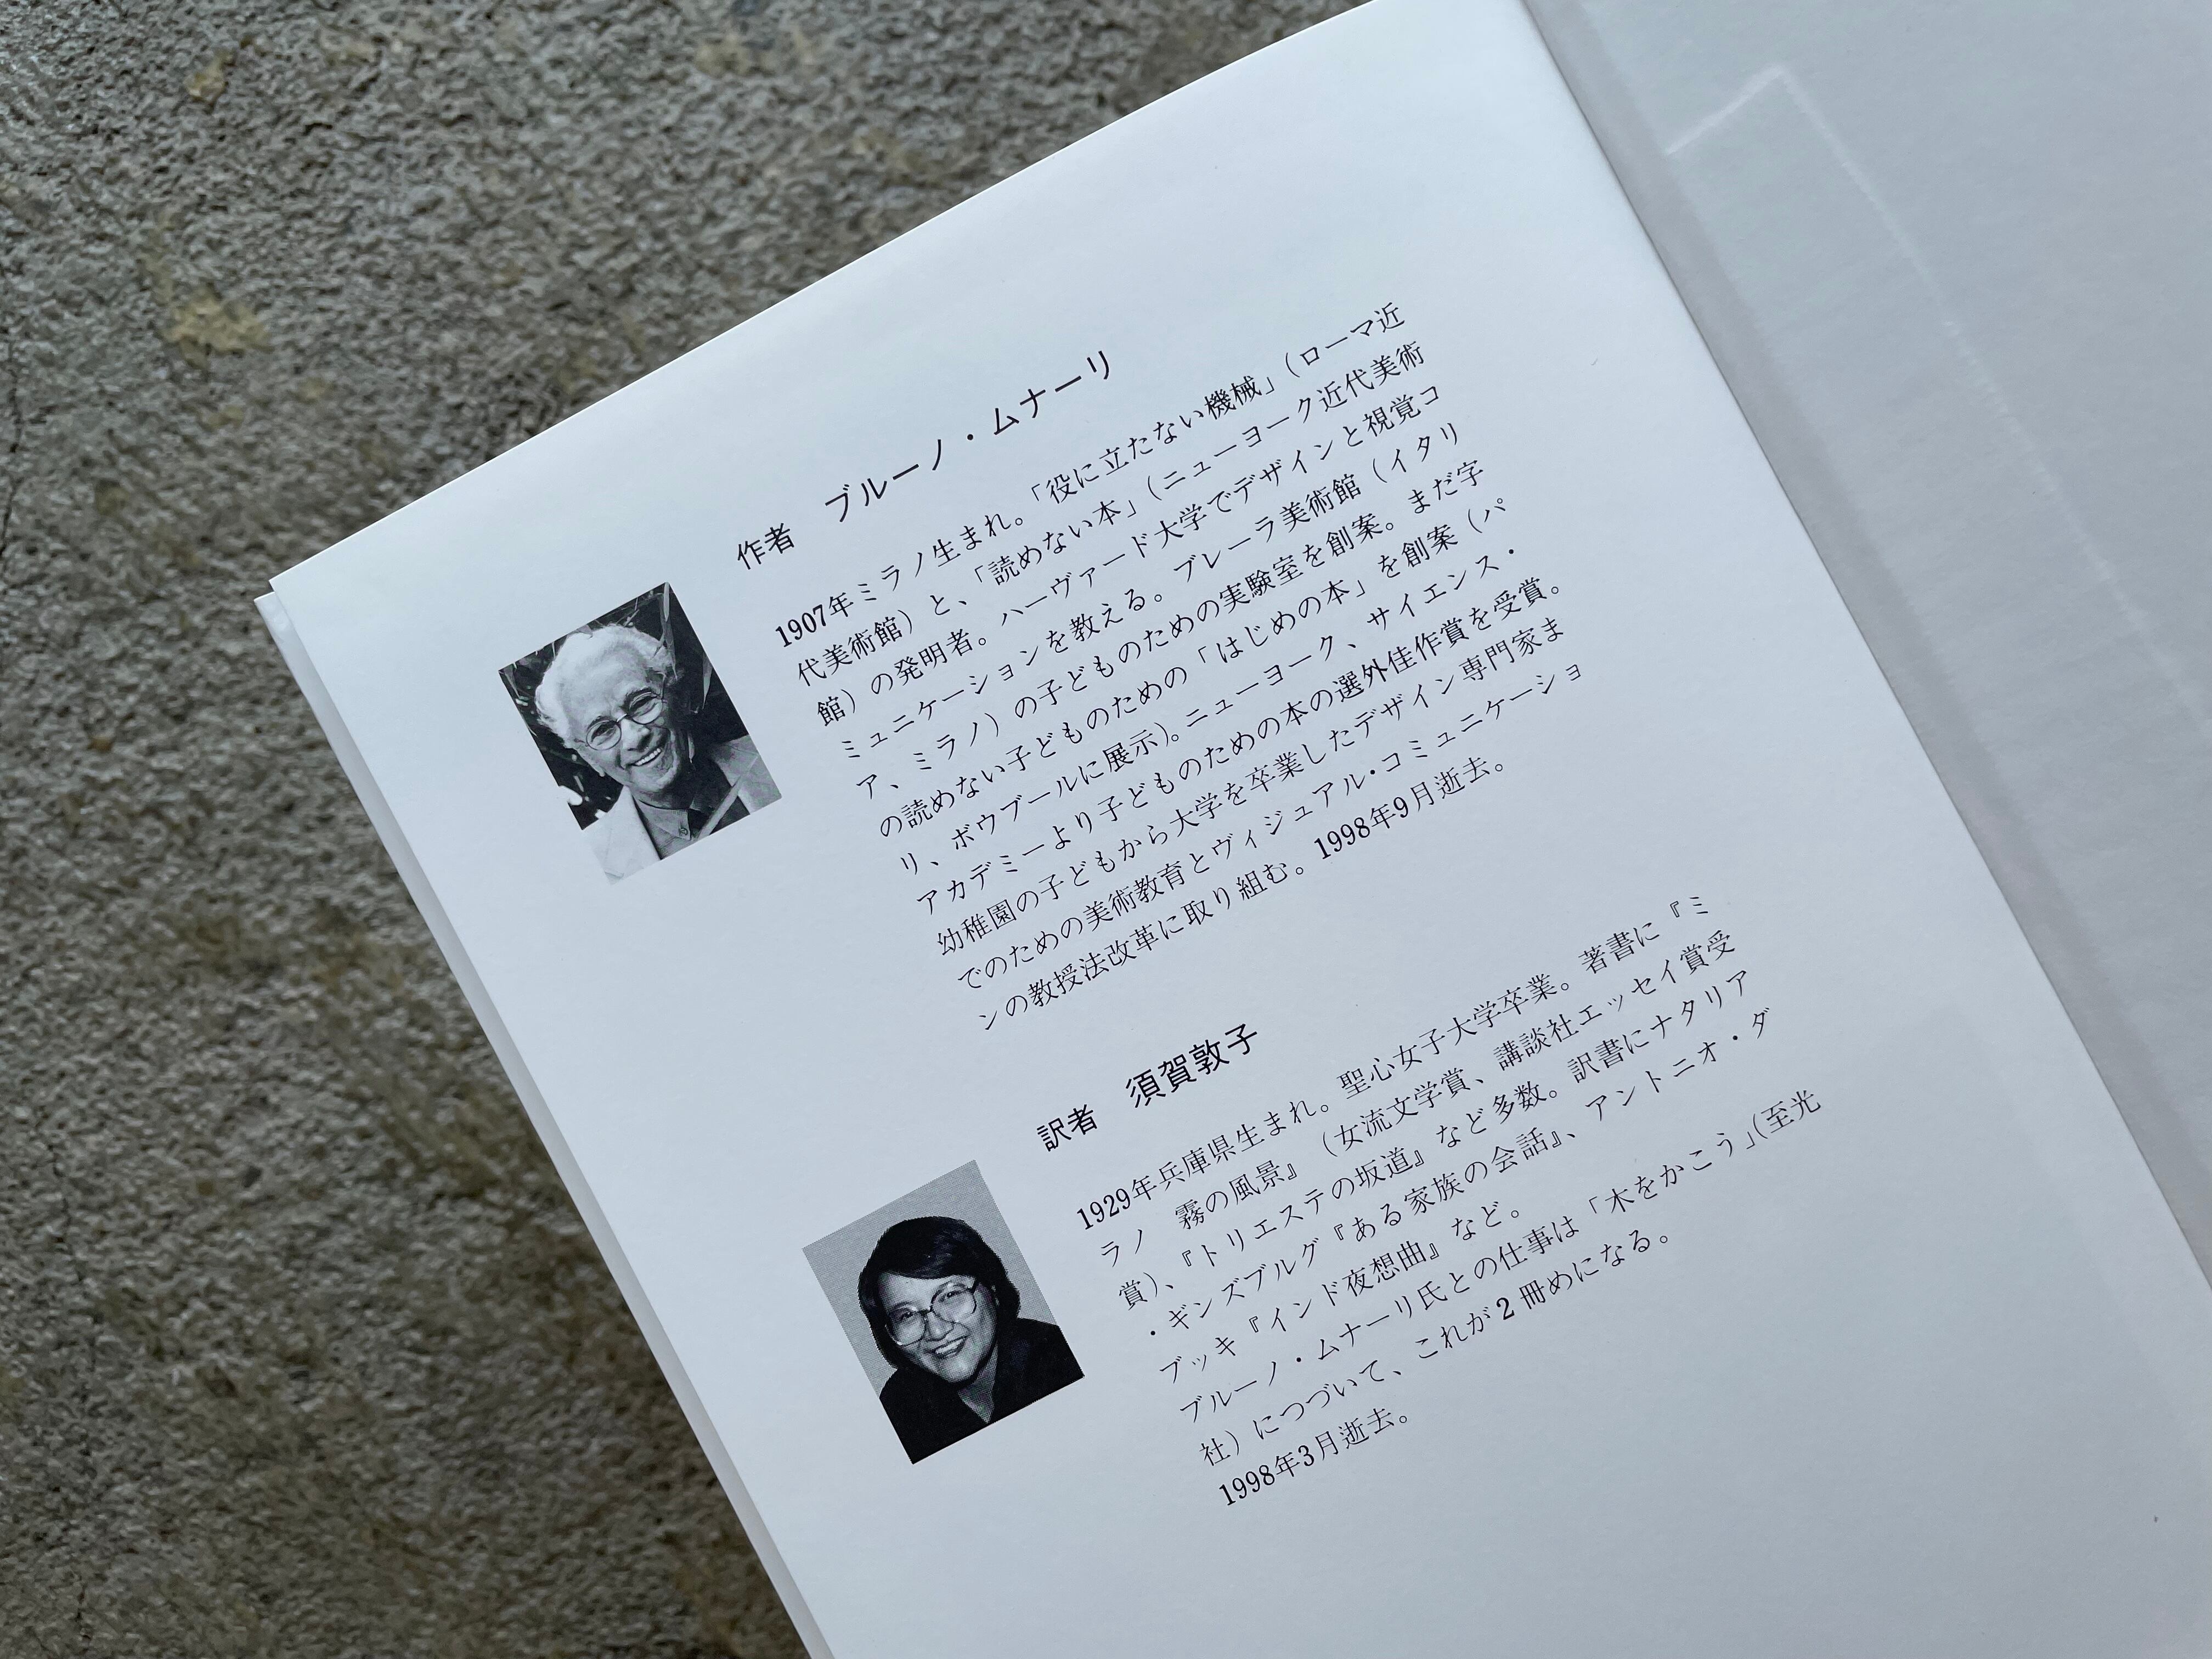 作者　ブルーノ・ムナーリ
1907年ミラノ生まれ。「役に立たない機械」（ローマ近
代美術館）と、「読めない本」（ニューヨーク近代美術
館）の発明者。ハーヴァード大学でデザインと視覚コ
ミュニケーションを教える。ブレーラ美術館（イタリ
ア、ミラノ）の子どものための実験室を創案。まだ字
の読めない子どものための「はじめの本」を創案（パ
リ、ボウブールに展示）。ニューヨーク、サイエンス・
アカデミーより子どものための本の選外佳作賞を受賞。
幼稚園の子どもから大学を卒業したデザイン専門家ま
でのための美術教育とヴィジュアル・コミュニケーショ
ンの教授法改革に取り組む。1998年9月逝去。
訳者　須賀敦子
1929年兵庫県生まれ。聖心女子大学卒業。著書に『ミ
ラノ　霧の風景』（女流文学賞、講談社エッセイ賞受
賞）、『トリエステの坂道』など多数。訳書にナタリア
・ギンズブルグ『ある家族の会話』、アントニオ・ダ
ブッキ『インド夜想曲』など。
ブルーノ・ムナーリ氏との仕事は「木をかこう」（至光
社）につづいて、これが2冊めになる。
1998年3月逝去。